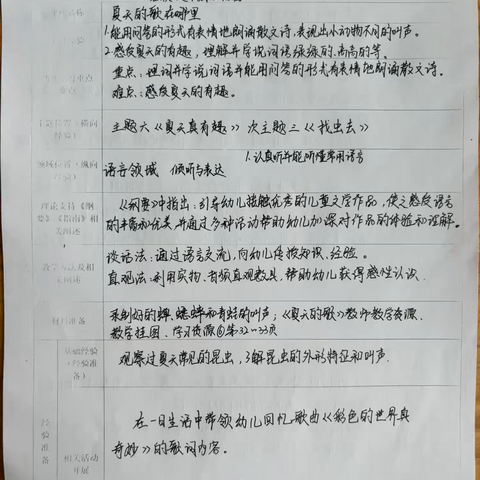 夏天的歌在哪里
1.能用问答的形式有表情地朗诵散文诗,表现出小动物不同的叫声。
2.感受夏天的有趣,理解并学说词语绿绿的、高高的等。
重点:理词并学说词语并能用问答的形式有表情地朗诵散文诗。
难点:感受夏天的有趣。
主题六《夏天真有趣》次主题二《找出去》
1.认真听并能听懂常用语言
语言领域 倾听与表达
《纲要》中指出:引导幼儿接触优秀的儿童文学作品,使之感受语言
的丰富和优美,并通过多种活动帮助幼儿加深对作品的体验和理解。
谈话法:通过语言交流,向幼儿传授知识、经验。
直观法:利用实物、音频直观教具,帮助幼儿获得感性认识.
材料准备
录制好的蝉、蟋蟀和青蛙的叫声;《夏天的歌》教师教学资源.
教学挂图、学习资源⑥第32-33页
基础经验
(经验准
备)
观察过夏天常见的昆虫,了解昆虫的外形特征和叫声.
经
验
准
备
相关活动
开展
在一日生活中带领幼儿回忆歌曲《彩色的世界真
奇妙》的歌词内容。